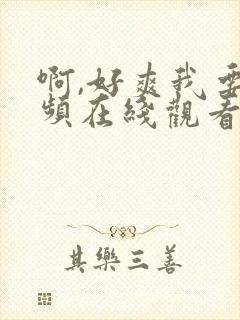 啊,好爽我要
頻在綫觀看
其樂三善